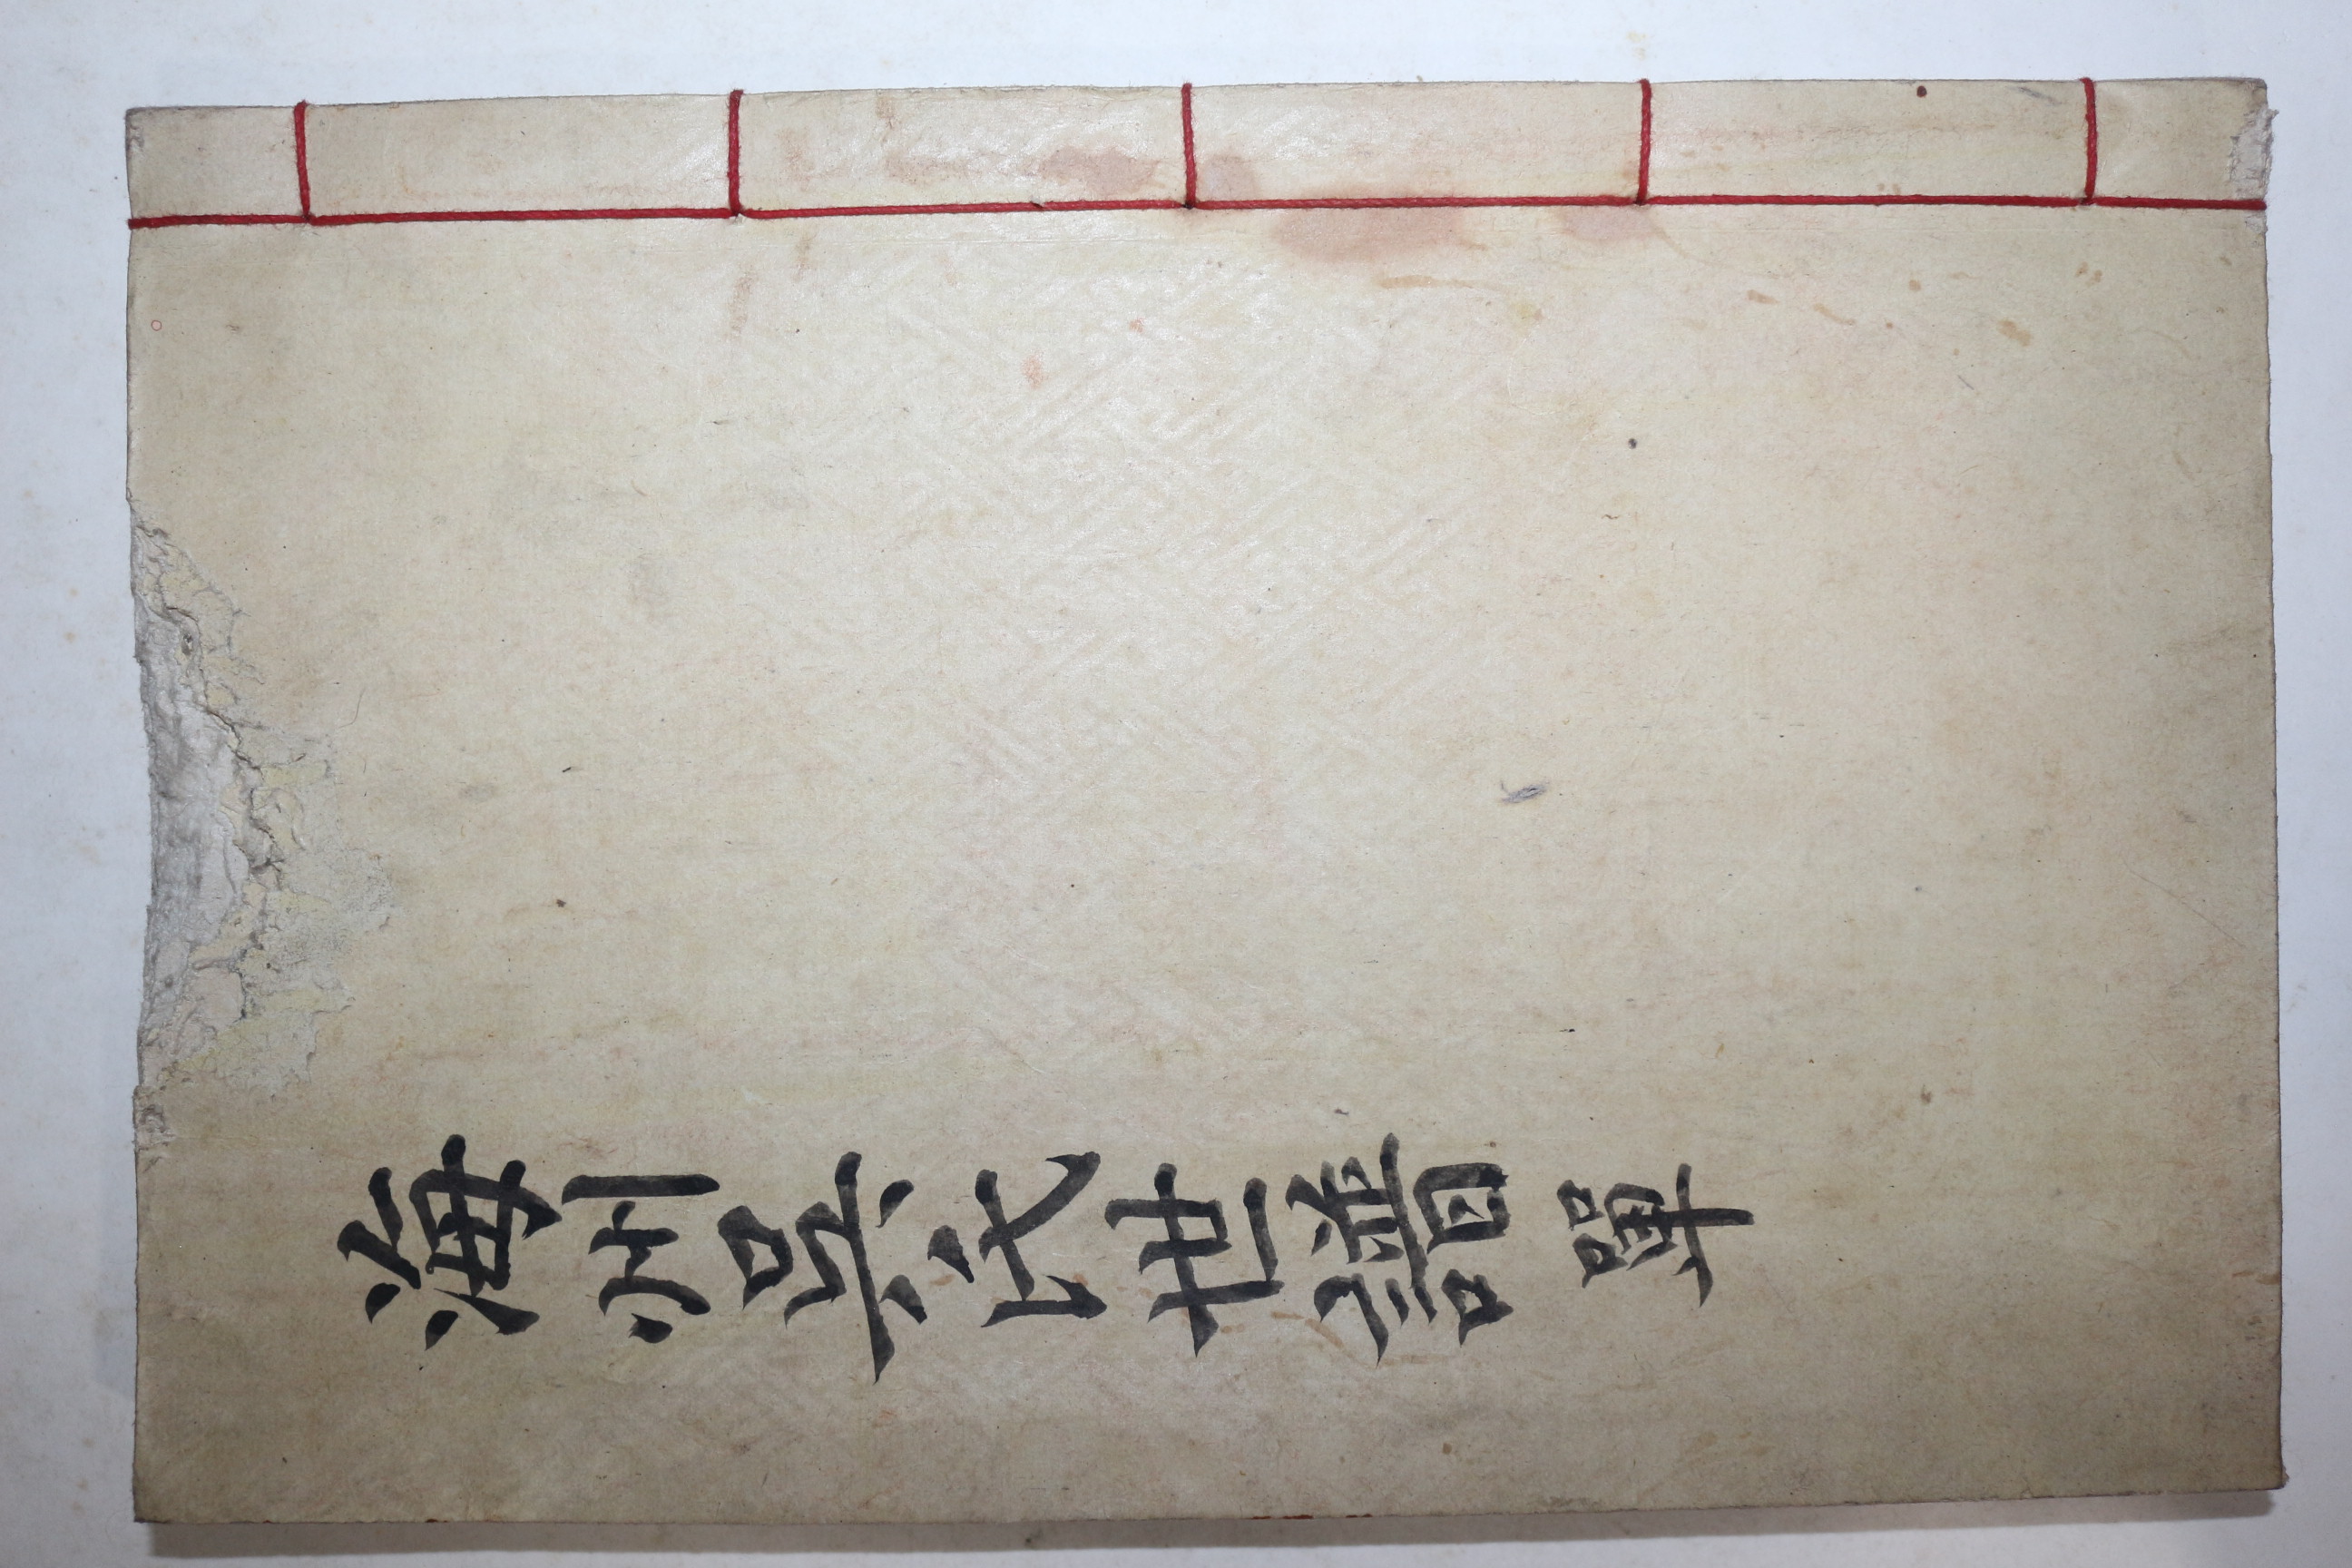 海州吳氏世譜 單